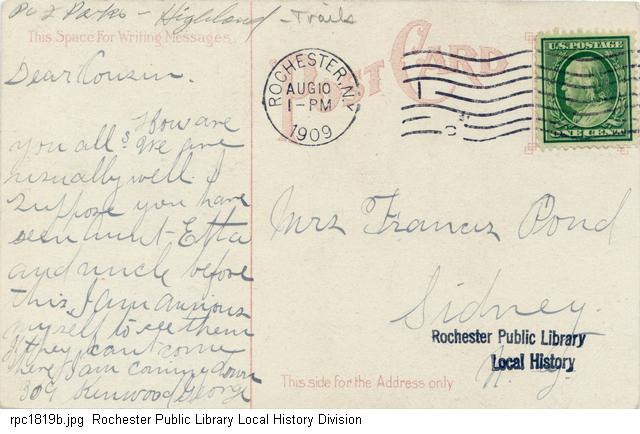 Po 2 Parks - Highland - Trails
This Space For Writing Messages.
POST CARD
ROCHESTER, N.Y.
AUG 10
1-PM
1909
U.S. POSTAGE
ONE CENT
Dear Cousin.
How are
you all? We are
usually well. I
suppose you have
seen aunt Etta
and uncle before
this, I am anxious
myself to see them
If they cant come
here I am coming down
309 Kenwood George
Mrs Francis Pond
Sidney.
N. Y.
Rochester Public Library
Local History
This side for the Address only
rpc1819b.jpg Rochester Public Library Local History Division